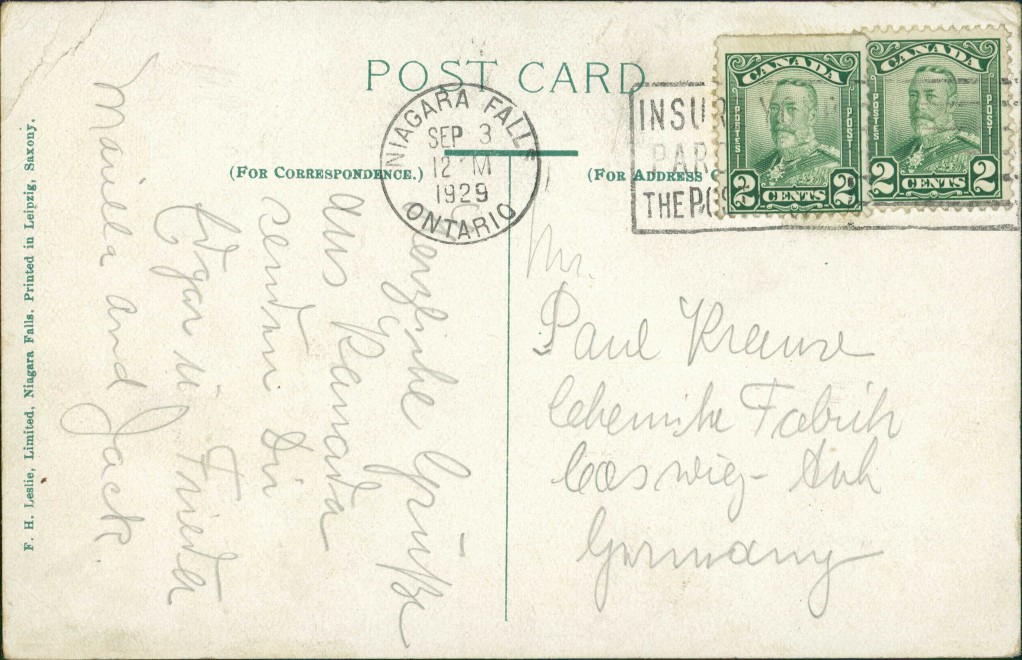 POST CARD
(FOR CORRESPONDENCE.)
(FOR ADDRESS
NIAGARA FALLS
SEP 3
12 M
1929
ONTARIO
INSUR
PAR
THE POS
CANADA
POSTES
POSTES
2 CENTS 2
CANADA
POSTES
POSTES
2 CENTS 2
Herzliche Grüße
aus Kanada
senden Dir
Edgar u. Frieda
Mariella and Jack.
Mr.
Paul Krause
Chemische Fabrik
Coswig - Anh
Germany
F. H. Leslie, Limited, Niagara Falls. Printed in Leipzig, Saxony.